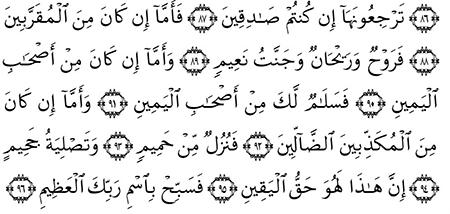 ﴿٨٦﴾ تَرْجِعُونَهَآ إِن كُنتُمْ صَـٰدِقِينَ ﴿٨٧﴾ فَأَمَّآ إِن كَانَ مِنَ ٱلْمُقَرَّبِينَ
﴿٨٨﴾ فَرَوْحٌ وَرَيْحَانٌ وَجَنَّتُ نَعِيمٍ ﴿٨٩﴾ وَأَمَّآ إِن كَانَ مِنْ أَصْحَـٰبِ
ٱلْيَمِينِ ﴿٩٠﴾ فَسَلَـٰمٌ لَّكَ مِنْ أَصْحَـٰبِ ٱلْيَمِينِ ﴿٩١﴾ وَأَمَّآ إِن كَانَ
مِنَ ٱلْمُكَذِّبِينَ ٱلضَّآلِّينَ ﴿٩٢﴾ فَنُزُلٌ مِّنْ حَمِيمٍ ﴿٩٣﴾ وَتَصْلِيَةُ جَحِيمٍ
﴿٩٤﴾ إِنَّ هَـٰذَا لَهُوَ حَقُّ ٱلْيَقِينِ ﴿٩٥﴾ فَسَبِّحْ بِٱسْمِ رَبِّكَ ٱلْعَظِيمِ ﴿٩٦﴾